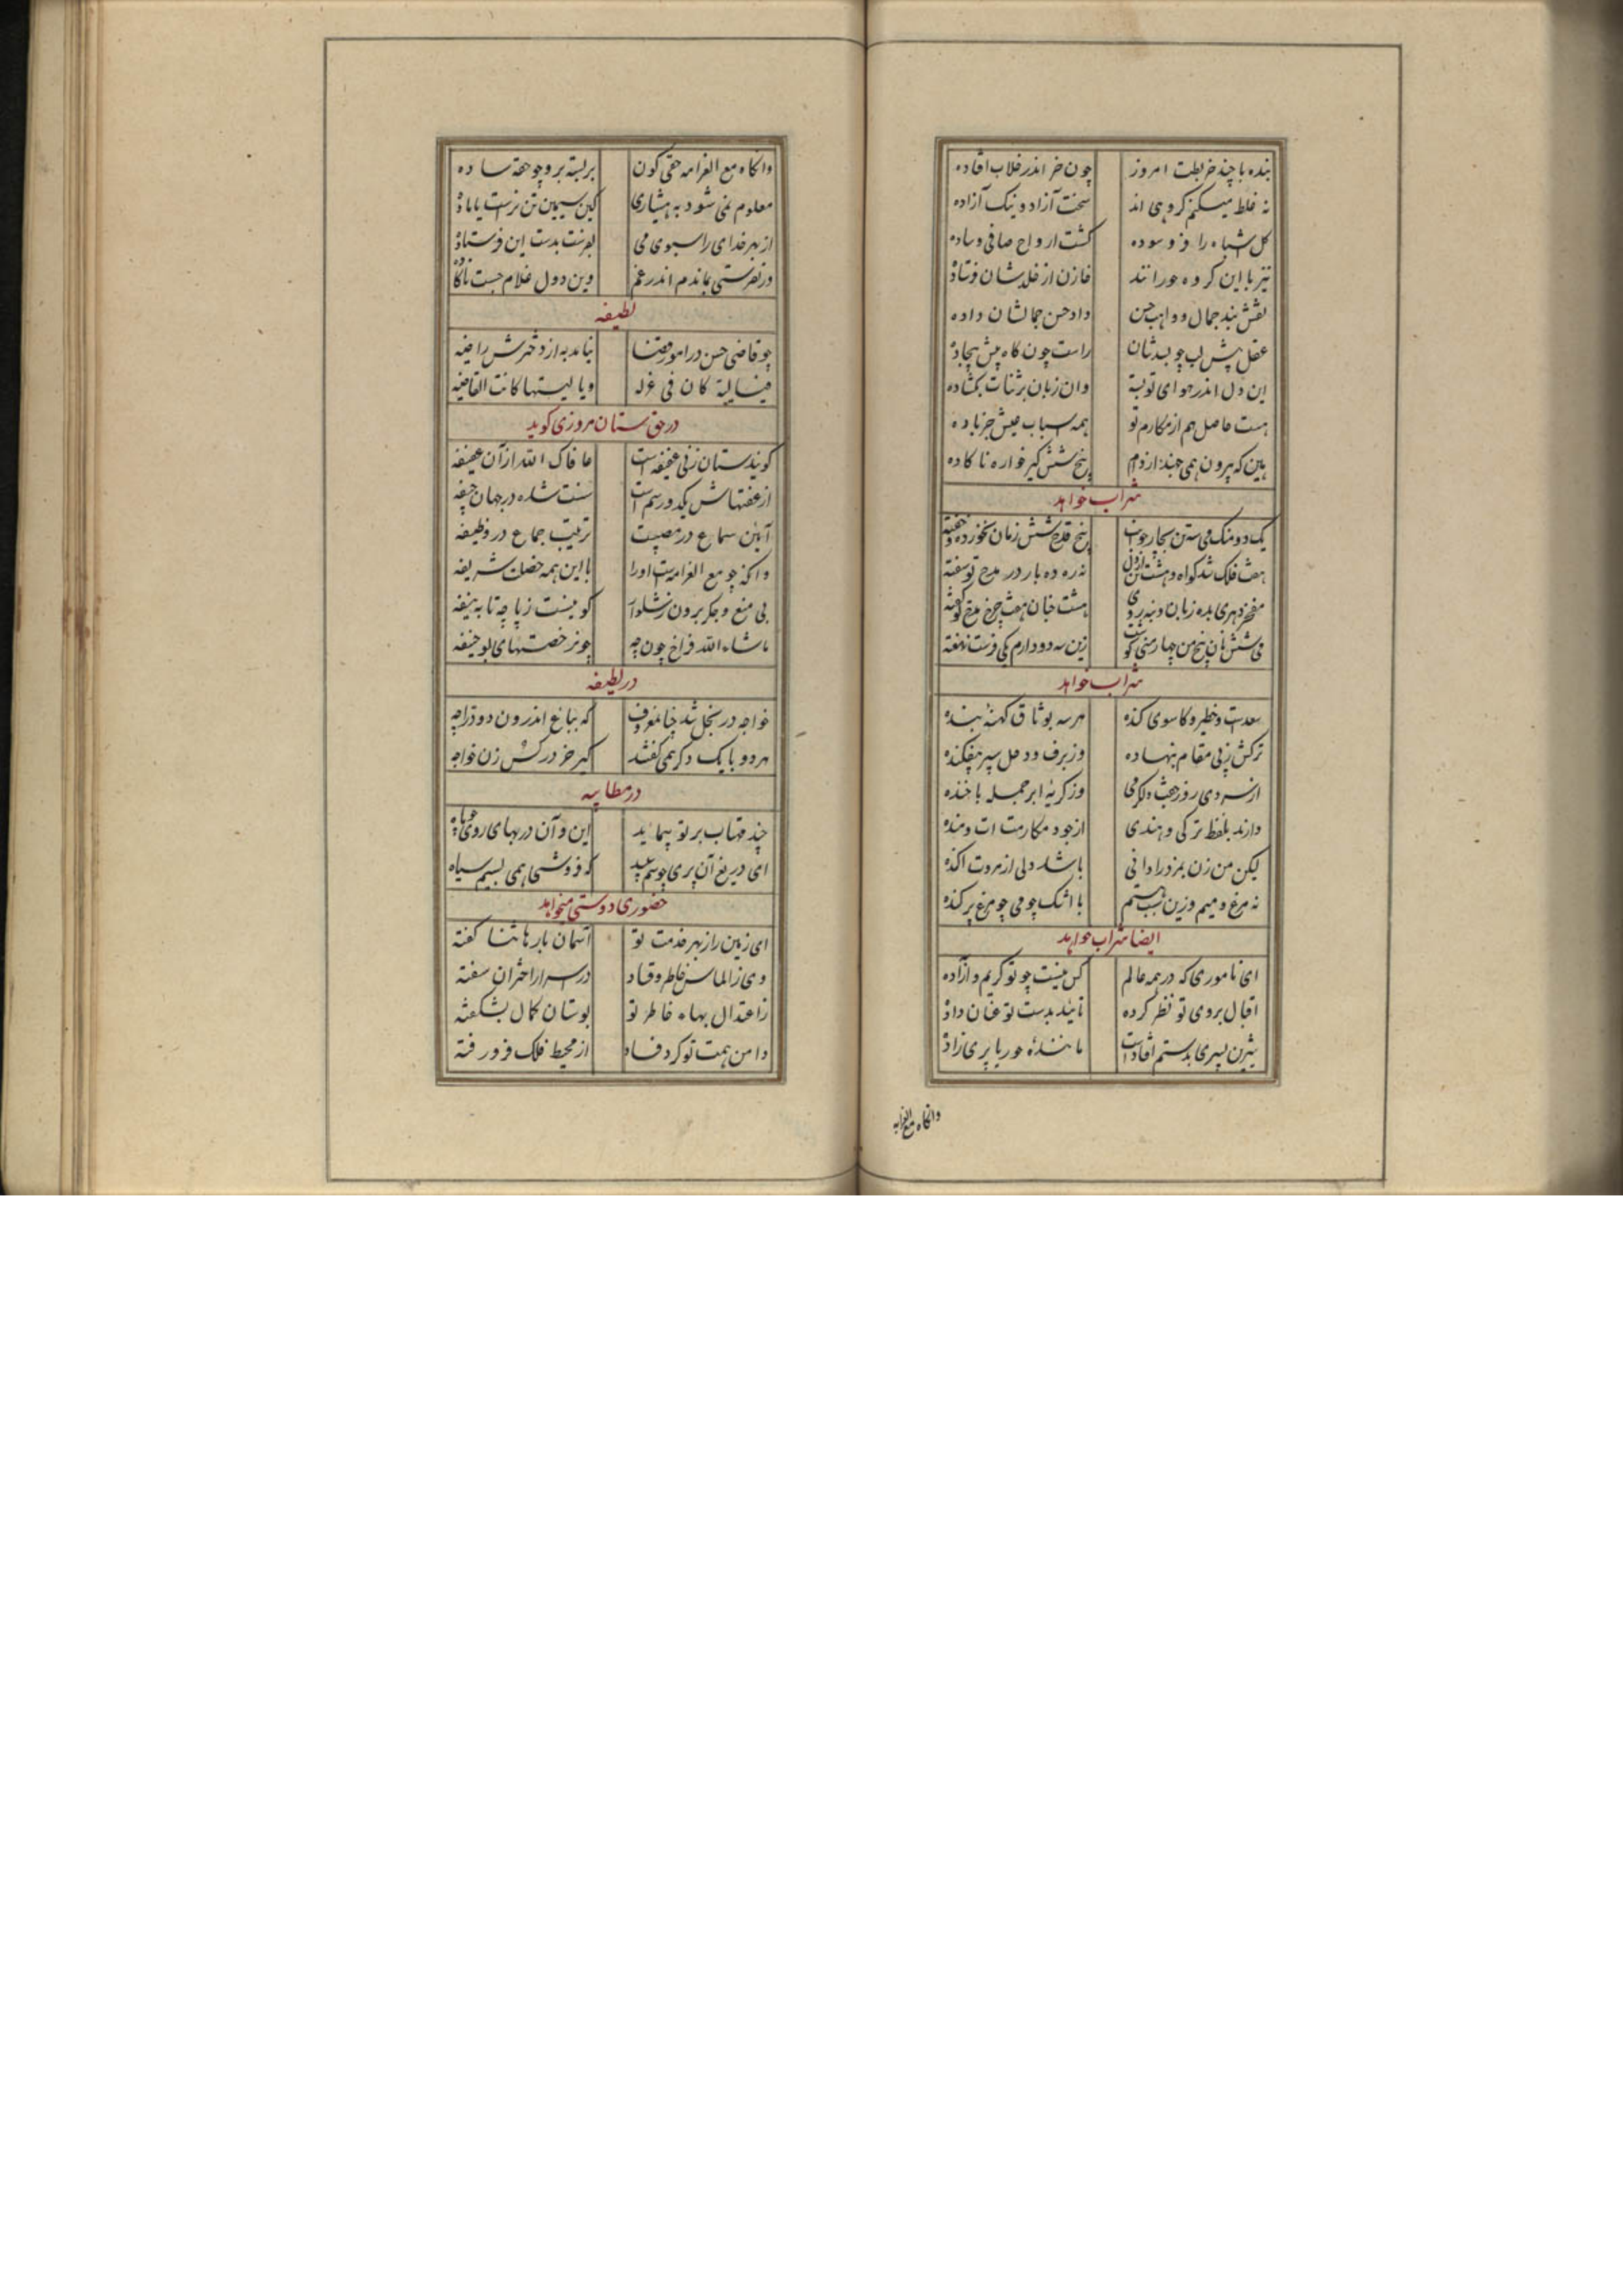 بنده با چند خر بطت امروز چون خر اندر خلاب افتاده
نه غلط میکنم کروهی اند سخت آزاد و نیک آزاده
کل اشباه را فرو سوده کشت ارواح صافی و ساده
نیز با این کروه حورانند خازن از خلدشان فرستاده
نقش بند جمال و واهب حسن داد حسن جمالشان داده
عقل پیش لب چو بسدشان راست چون کاه پیش بیجاده
این دل اندر هوای تو بسته وان زبان بر ثنات بکشاده
هست حاصل هم از مکارم تو همه اسباب عیش جز باده
هین که بیرون همی جهند از دام پنج شش کیر خواره ناکاده
شراب خواهد
یک دو منک می سه تن بچار جوانب پنج قدح شش زمان نخورده و خفته
هفت فلک شد کواه و هشت نه ره ده بار در مدح تو سفته
مفخر دهری بده زبان و نه هشت جنان هفت چرخ مدح تو کفته
می شش نان پنج من چهار زین سه دو دارم یکی فرست نهفته
شراب خواهد
سعدست و خطیر و کاسوی کنده هر سه بوثاق کهنهٔ بنده
ترکش زنی مقام بنهاده وز برف و دحل سپر بیفکنده
از سردی روز جفت دلکرمی وز کریهٔ ابر جمله با خنده
دارند بلفظ ترکی و هندی از جود مکارمت ات و منده
لیکن من زن بمزد را دانی باشد دلی از مروت اکنده
نه مرغ و میم وزین سبب هستم با اشک چو می چو مرغ پرکنده
ایضا شراب خواهد
ای ناموری که در همه عالم کس نیست چو تو کریم و آزاده
اقبال بروی تو نظر کرده تایید بدست تو عنان داده
بیژن پسری بدستم افتادست مانندهٔ حور یا پری زاده
وانکاه مع الغرامه
وانکاه مع الغرامه حقی کون بر بسته برو چو حقه ساده
معلوم نمی شود به هشیاری کین سیمین تن نرست یا ماده
از بهر خدای را سبوی می بفرست بدست این فرستاده
ور نفرستی بماندم اندر غم وین دول غلام جست ناکاده
لطیفه
چو قاضی حسن در امور قضا نیامد به از دخترش راضیه
فیا لیته کان فی غزله ویا لیتها کانت القاضیه
در حق ستان مروزی کوید
کویند ستان زنی عفیفه است عافاک الله از آن عفیفه
از عفتهاش یکدو رسم است سنت شده در جهان جیفه
آیین سماع در مصیبت ترتیب جماع در وظیفه
وانکه چو مع الغرامیت او را با این همه خصلت شریفه
بی منع و جکر برون ز شلوار کو نیست ز پاچه تا به نیفه
ماشاء الله فراخ چون چه چونر خصتهای بو حنیفه
در لطیفه
خواجه در بخل شد چنان معروف که بباغ اندرون دو دراجه
هر دو با یک دکر همی کفتند کیر خر در کس زن خواجه
در مطایبه
چند مهتاب بر تو پیماید این و آن در بهای روی چو ماه
ای دریغ آن بری چو سیم سپید که فروشی همی بسیم سیاه
حضوری دوستی میخواهد
ای زمین را ز بهر خدمت تو آسمان بارها ثنا کفته
وی ز الماس خاطر وقاد در اسرار اختران سفته
ز اعتدال بهاء خاطر تو بوستان کمال بشکفته
دامن همت تو کرد فساد از محیط فلک فرو رفته